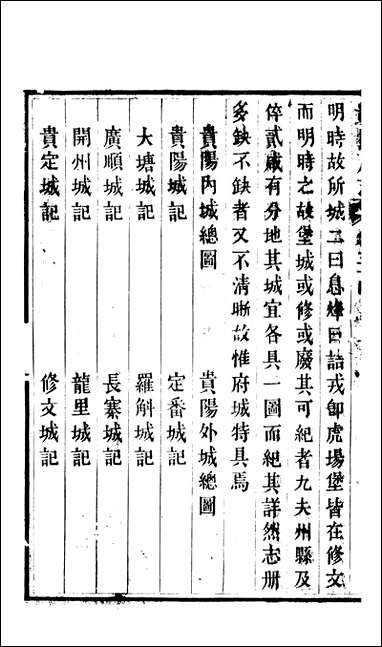 明時故所城二曰息烽曰詰戎卽虎場堡皆在修文
而明時之故堡城或修或廢其可紀者九夫州縣及
倅貳咸有分地其城宜各具一圖而紀其詳然志册
多缺不缺者又不清晰故惟府城特具焉
貴陽內城總圖
貴陽外城總圖
貴陽城記
定番城記
大塘城記
羅斛城記
廣順城記
長寨城記
開州城記
龍里城記
貴定城記
修文城記